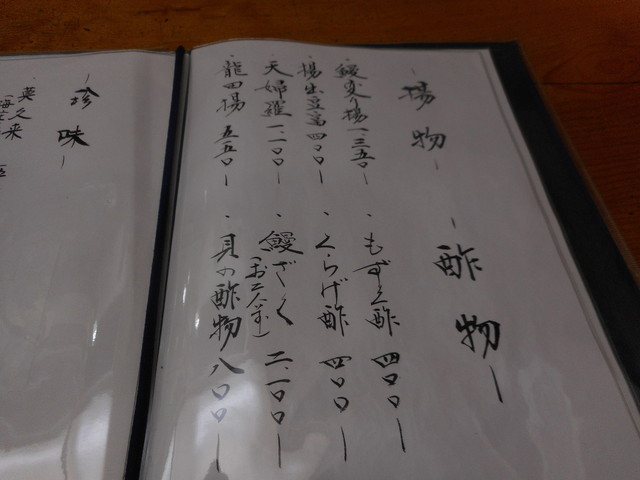 揚物
鰻変り揚 一、三五〇
揚出豆富 四〇〇
天婦羅 一、一〇〇
龍田揚 五五〇
酢物
もずく酢 四〇〇
くらげ酢 四〇〇
鰻ざく 二、一〇〇
(お二人前)
貝の酢物 八〇〇
珍味
莫久来